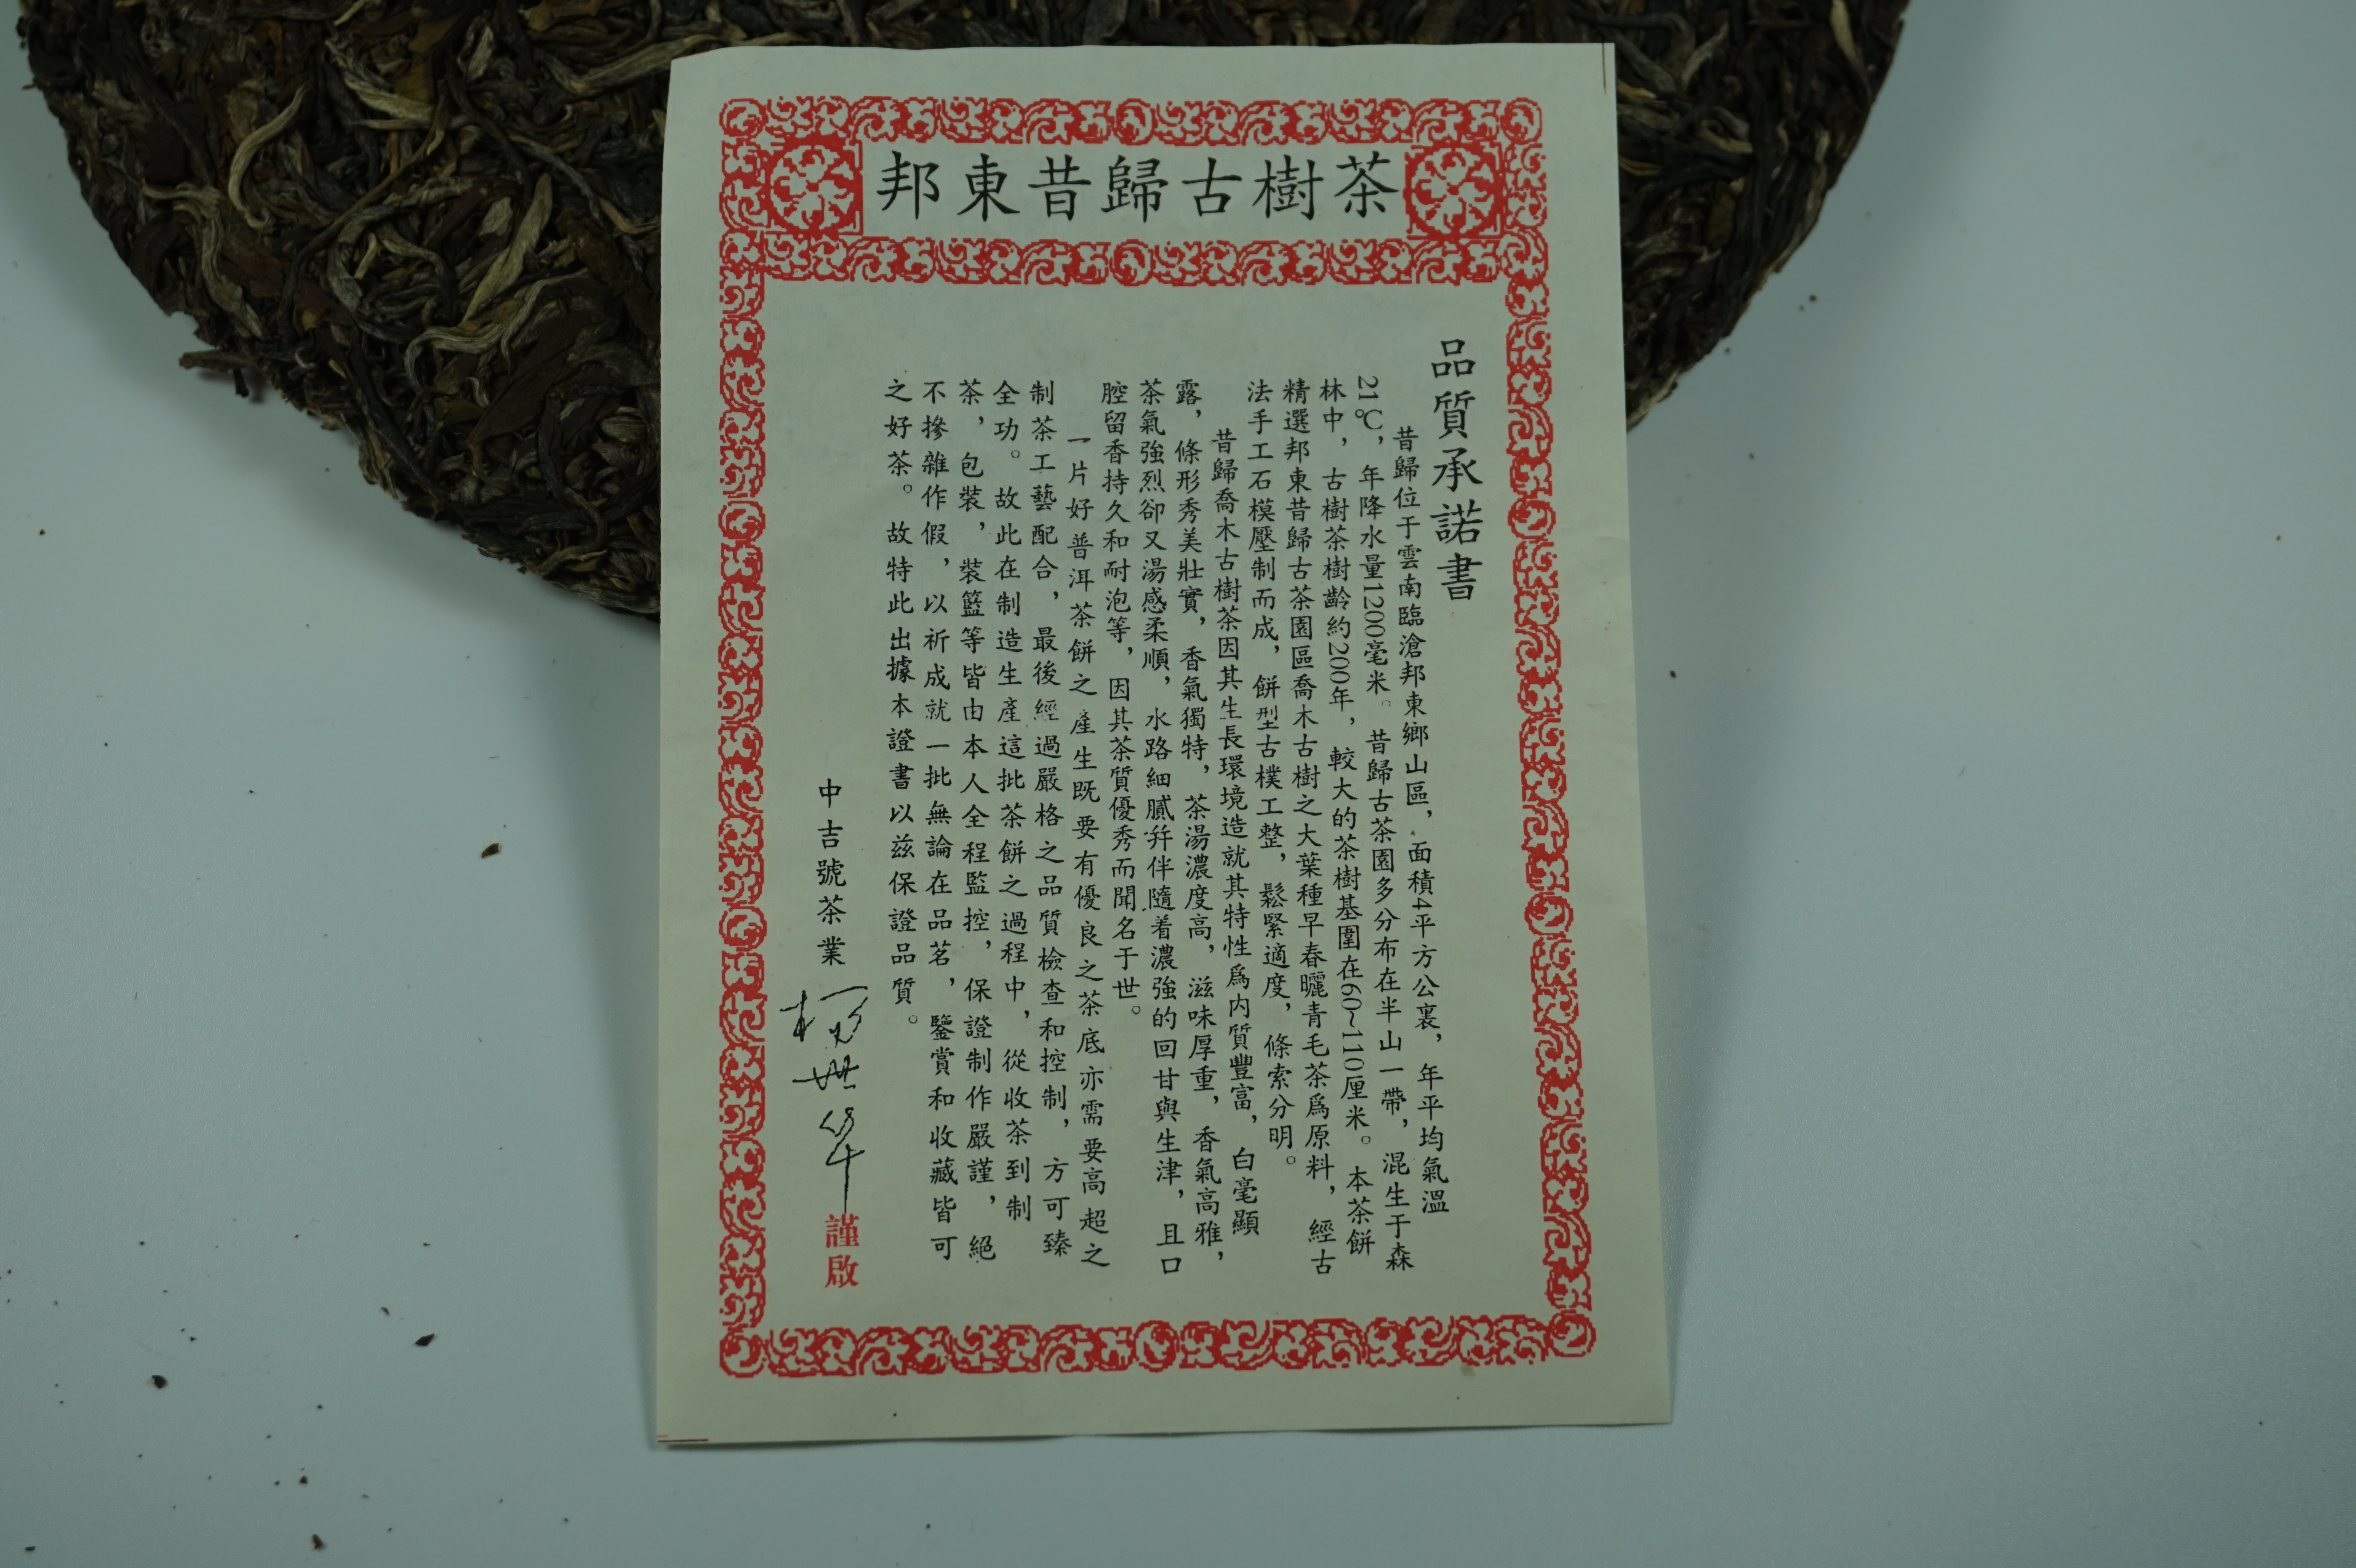 邦東昔歸古樹茶
品質承諾書
昔歸位于雲南臨滄邦東鄉山區，面積4平方公裏，年平均氣溫
21℃，年降水量1200毫米。昔歸古茶園多分布在半山一帶，混生于森
林中，古樹茶樹齡約200年，較大的茶樹基圍在60~110厘米。本茶餅
精選邦東昔歸古茶園區喬木古樹之大葉種早春曬青毛茶爲原料，經古
法手工石模壓制而成，餅型古樸工整，鬆緊適度，條索分明。
昔歸喬木古樹茶因其生長環境造就其特性爲内質豐富，白毫顯
露，條形秀美壯實，香氣獨特，茶湯濃度高，滋味厚重，香氣高雅，
茶氣強烈卻又湯感柔順，水路細膩幷伴隨着濃強的回甘與生津，且口
腔留香持久和耐泡等，因其茶質優秀而聞名于世。
一片好普洱茶餅之產生既要有優良之茶底亦需要高超之
制茶工藝配合，最後經過嚴格之品質檢查和控制，方可臻
全功。故此在制造生產這批茶餅之過程中，從收茶到制
茶，包裝，裝籃等皆由本人全程監控，保證制作嚴謹，絕
不摻雜作假，以祈成就一批無論在品茗，鑒賞和收藏皆可
之好茶。故特此出據本證書以兹保證品質。
中吉號茶業
謹啟